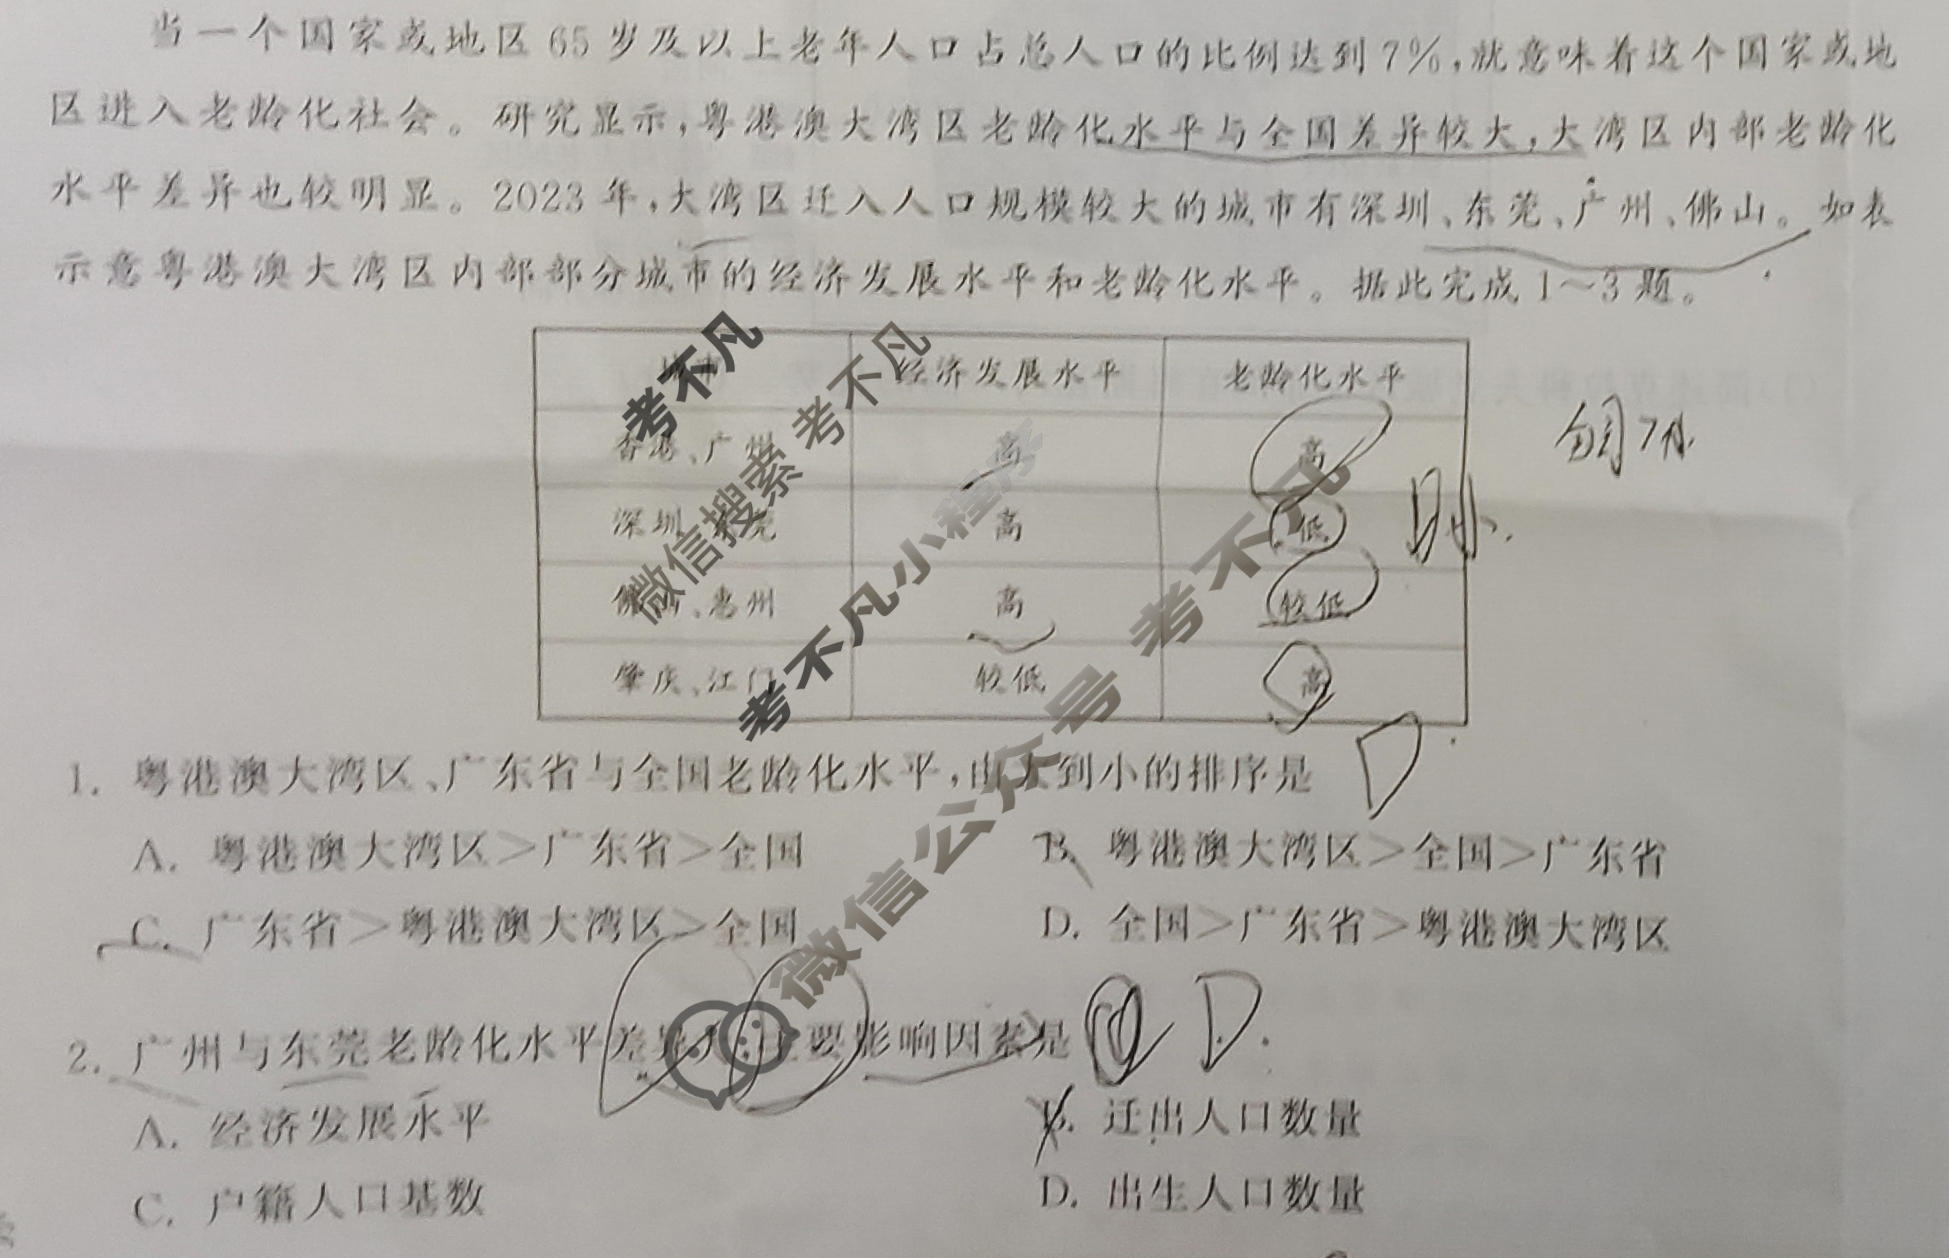 当一个国家或地区65岁及以上老年人口占总人口的比例达到7%,就意味着这个国家或地
区进入老龄化社会。研究显示,粤港澳大湾区老龄化水平与全国差异较大,大湾区内部老龄化
水平差异也较明显。2023年,大湾区迁入人口规模较大的城市有深圳、东莞、广州、佛山。如表
示意粤港澳大湾区内部部分城市的经济发展水平和老龄化水平。据此完成1～3题。
城市 经济发展水平 老龄化水平
香港、广州 高 高
深圳、东莞 高 低
佛山、惠州 高 较低
肇庆、江门 较低 高
1. 粤港澳大湾区、广东省与全国老龄化水平,由大到小的排序是 D
A. 粤港澳大湾区>广东省>全国 B. 粤港澳大湾区>全国>广东省
C. 广东省>粤港澳大湾区>全国 D. 全国>广东省>粤港澳大湾区
2. 广州与东莞老龄化水平差异大,主要影响因素是 D
A. 经济发展水平 B. 迁出人口数量
C. 户籍人口基数 D. 出生人口数量
考不凡
微信搜索 考不凡
考不凡小程序
微信公众号 考不凡